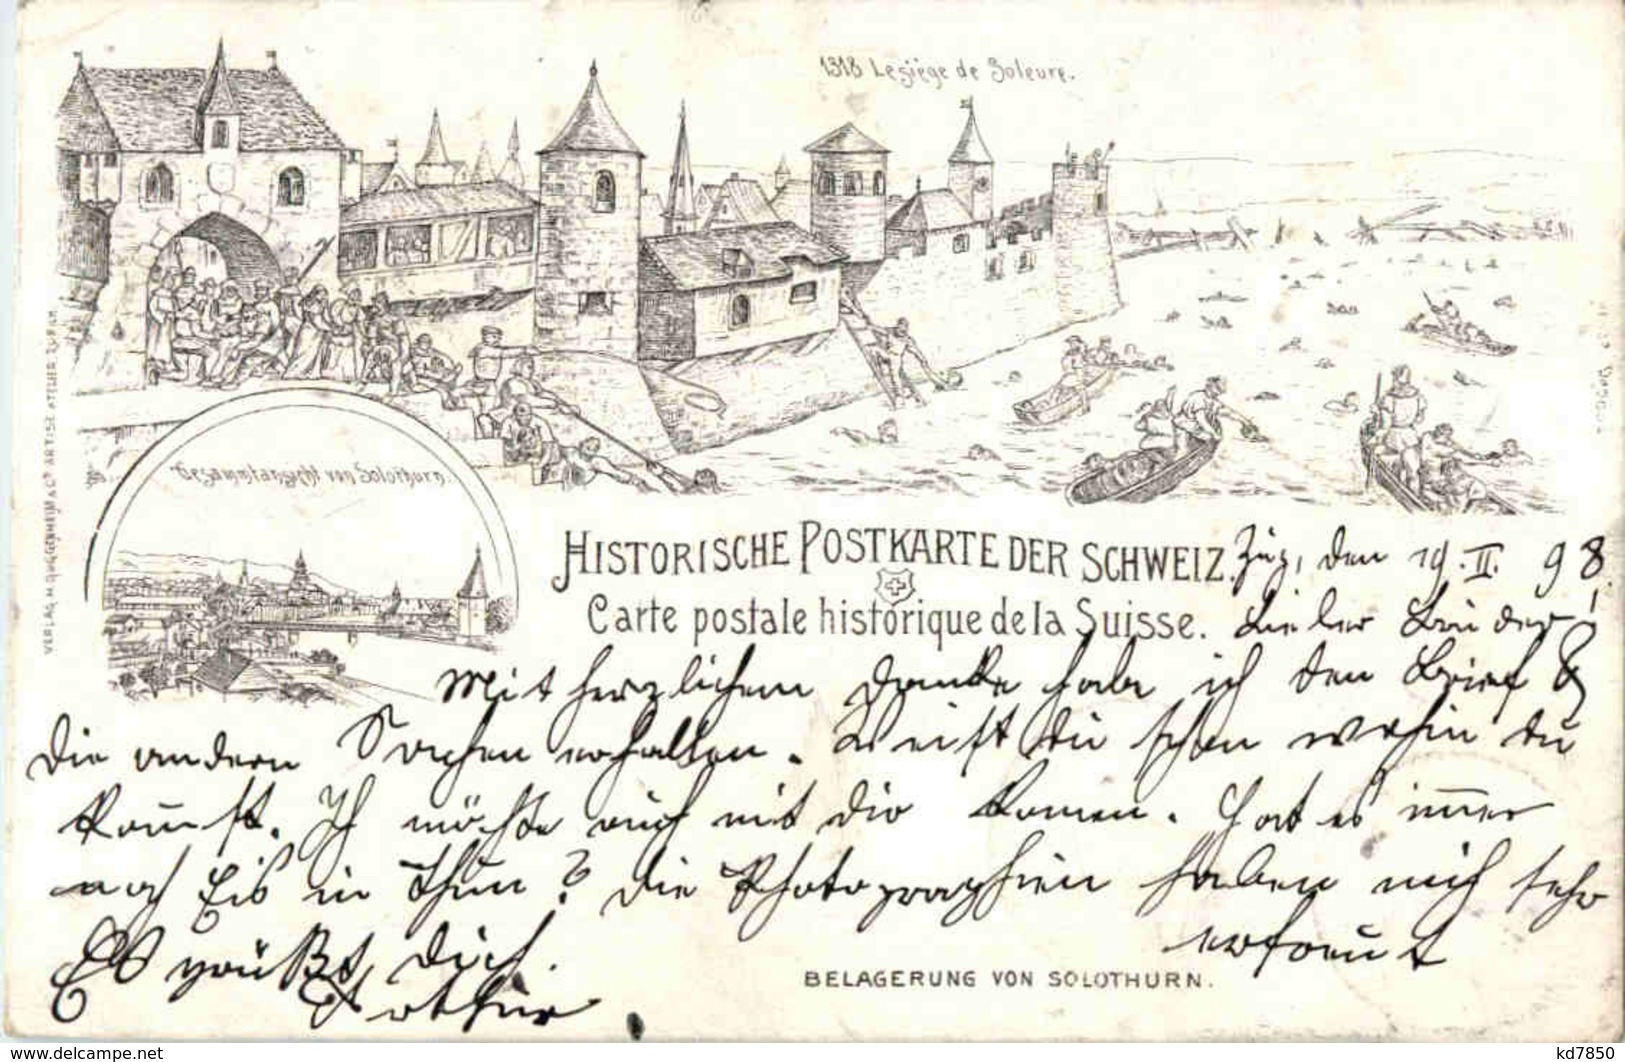 1318 Le siège de Soleure.
VERLAG H. GUGGENHEIM & Cº ARTIST. ATELIER ZÜRICH.
Gesammtansicht von Solothurn.
HISTORISCHE POSTKARTE DER SCHWEIZ.
Carte postale historique de la Suisse.
Zug, den 19. II. 98.
Lieber Bruder!
Mit herzlichem Danke habe ich den Brief &
die andern Sachen erhalten. Weißt du schon wohin du
kommst. Ich möchte auch mit dir komen. Hat es imer
noch Eis in Thun? Die Photographien haben mich sehr
erfreut
Es grüßt Dich
Arthur
BELAGERUNG VON SOLOTHURN.
www.delcampe.net
kd7850